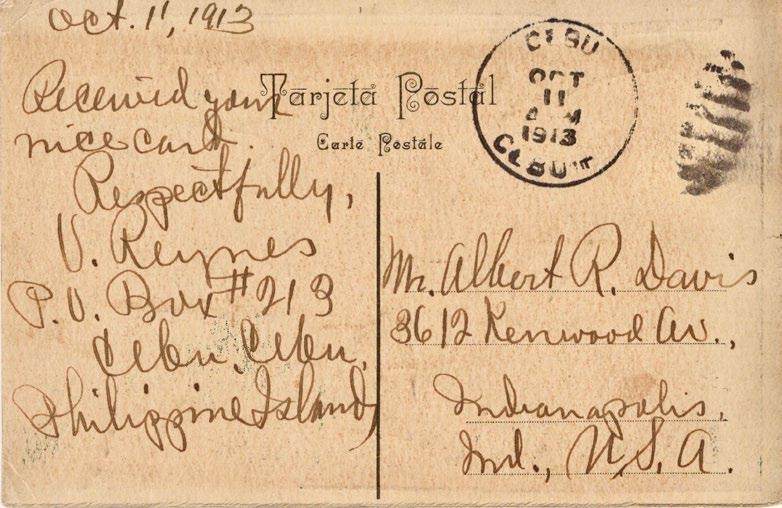 Oct. 11, 1913
Received your
nice card.
Respectfully,
V. Reynes
P.O. Box #213
Cebu, Cebu,
Philippine Islands
Tarjeta Postal
Carte Postale
CEBU
OCT
11
1913
CEBU
Mr. Albert R. Davis
3612 Kenwood Av.,
Indianapolis,
Ind., U.S.A.